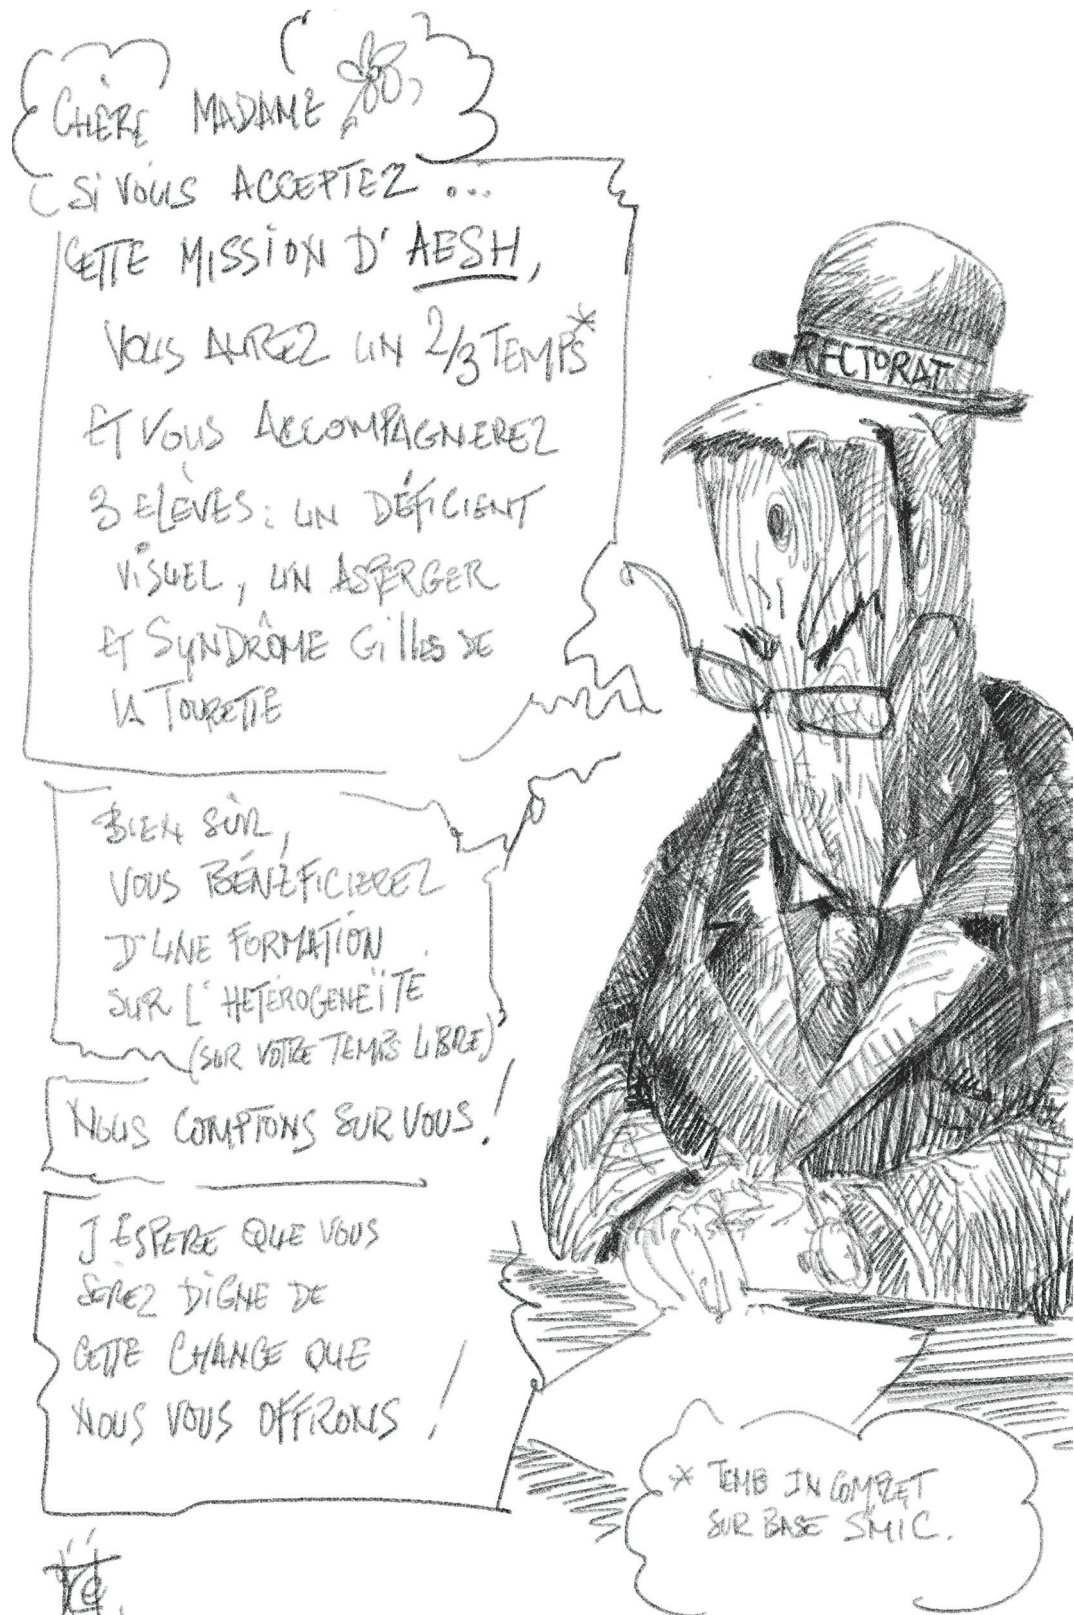 CHÈRE MADAME
SI VOUS ACCEPTEZ ...
CETTE MISSION D'AESH,
VOUS AUREZ UN 2/3 TEMPS*
ET VOUS ACCOMPAGNEREZ
3 ELÈVES : UN DÉFICIENT
VISUEL, UN ASPERGER
ET SYNDRÔME GILLES DE
LA TOURETTE
BIEN SÛR,
VOUS BÉNÉFICIEREZ
D'UNE FORMATION
SUR L'HETÉROGENEÏTÉ
(SUR VOTRE TEMPS LIBRE)
NOUS COMPTONS SUR VOUS !
J'ESPERE QUE VOUS
SEREZ DIGNE DE
CETTE CHANCE QUE
NOUS VOUS OFFIRONS !
RECTORAT
* TEMPS INCOMPLET
SUR BASE SMIC.